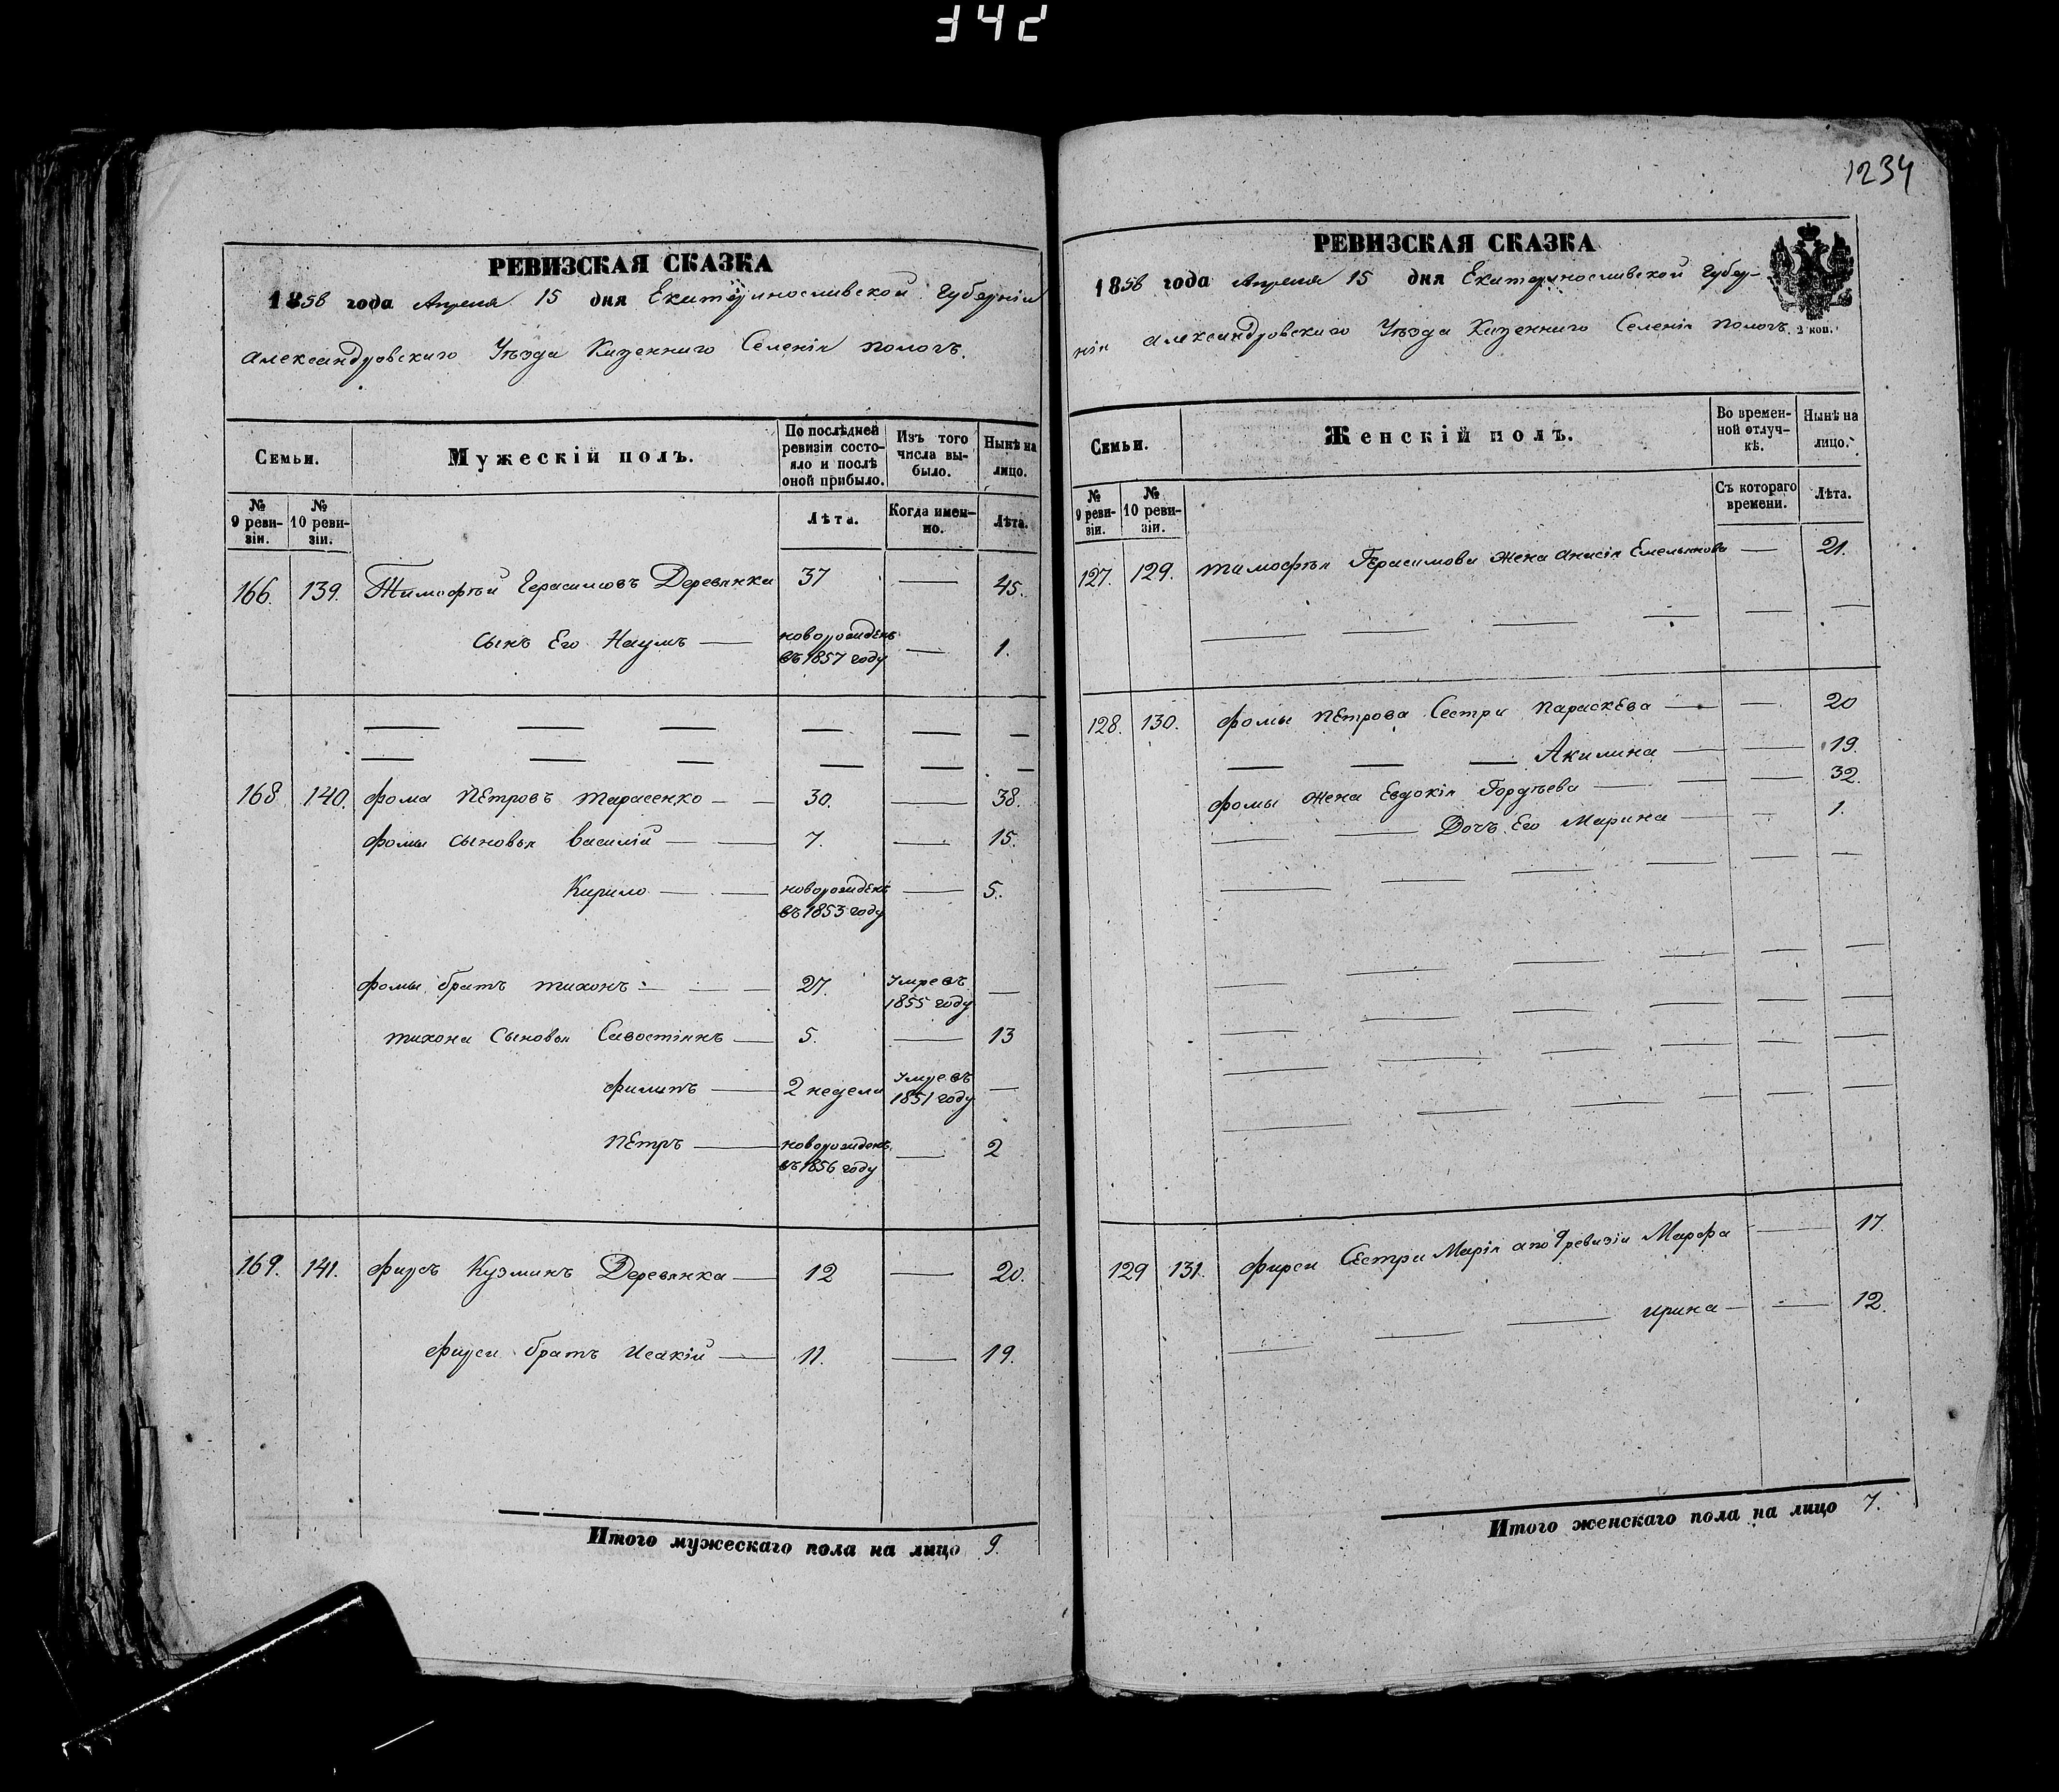 342
1234
РЕВИЗСКАЯ СКАЗКА
1858 года Апреля 15 дня Екатеринославской Губерніи
Александровскаго Уѣзда Казеннаго Селенія Пологъ.
Семьи.
Мужескій полъ.
По послѣдней ревизіи состояло и послѣ оной прибыло.
Изъ того числа выбыло.
Нынѣ на лицо.
№ 9 ревизіи.
№ 10 ревизіи.
Лѣта.
Когда именно.
Лѣта.
166. 139. Тимофѣй Герасимовъ Деревянка 37 — 45.
Сынъ Его Наумъ — новорожденъ въ 1857 году — 1.
168. 140. Фома Петровъ Тарасенко — 30. — 38.
Фомы Сыновья Василій — 7. — 15.
Кирило — новорожденъ въ 1853 году — 5.
Фомы братъ Тихонъ — 27. Умре въ 1855 году —
Тихона Сыновья Савостіянъ — 5. — 13
Филипъ — 2 недели Умре въ 1851 году —
Петръ — новорожденъ въ 1856 году — 2
169. 141. Фирсъ Кузминъ Деревянка — 12 — 20.
Фирса братъ Исакій — 11. — 19.
Итого мужескаго пола на лицо 9.
РЕВИЗСКАЯ СКАЗКА
1858 года Апреля 15 дня Екатеринославской Губер-
ніи Александровскаго Уѣзда Казеннаго Селенія Пологъ. 2 коп.
Семьи.
Женскій полъ.
Во временной отлучкѣ.
Нынѣ на лицо.
№ 9 ревизіи.
№ 10 ревизіи.
Съ котораго времени.
Лѣта.
127. 129. Тимофѣя Герасимова жена Анисія Емельянова — 21.
128. 130. Фомы Петрова Сестра Параскева — 20
Акилина — 19.
Фомы жена Евдокія Гордѣева — 32.
Дочь Его Марина — 1.
129 131. Фирса Сестра Марія а по 9 ревизіи Марфа — 17.
Ирина — 12.
Итого женскаго пола на лицо 7.